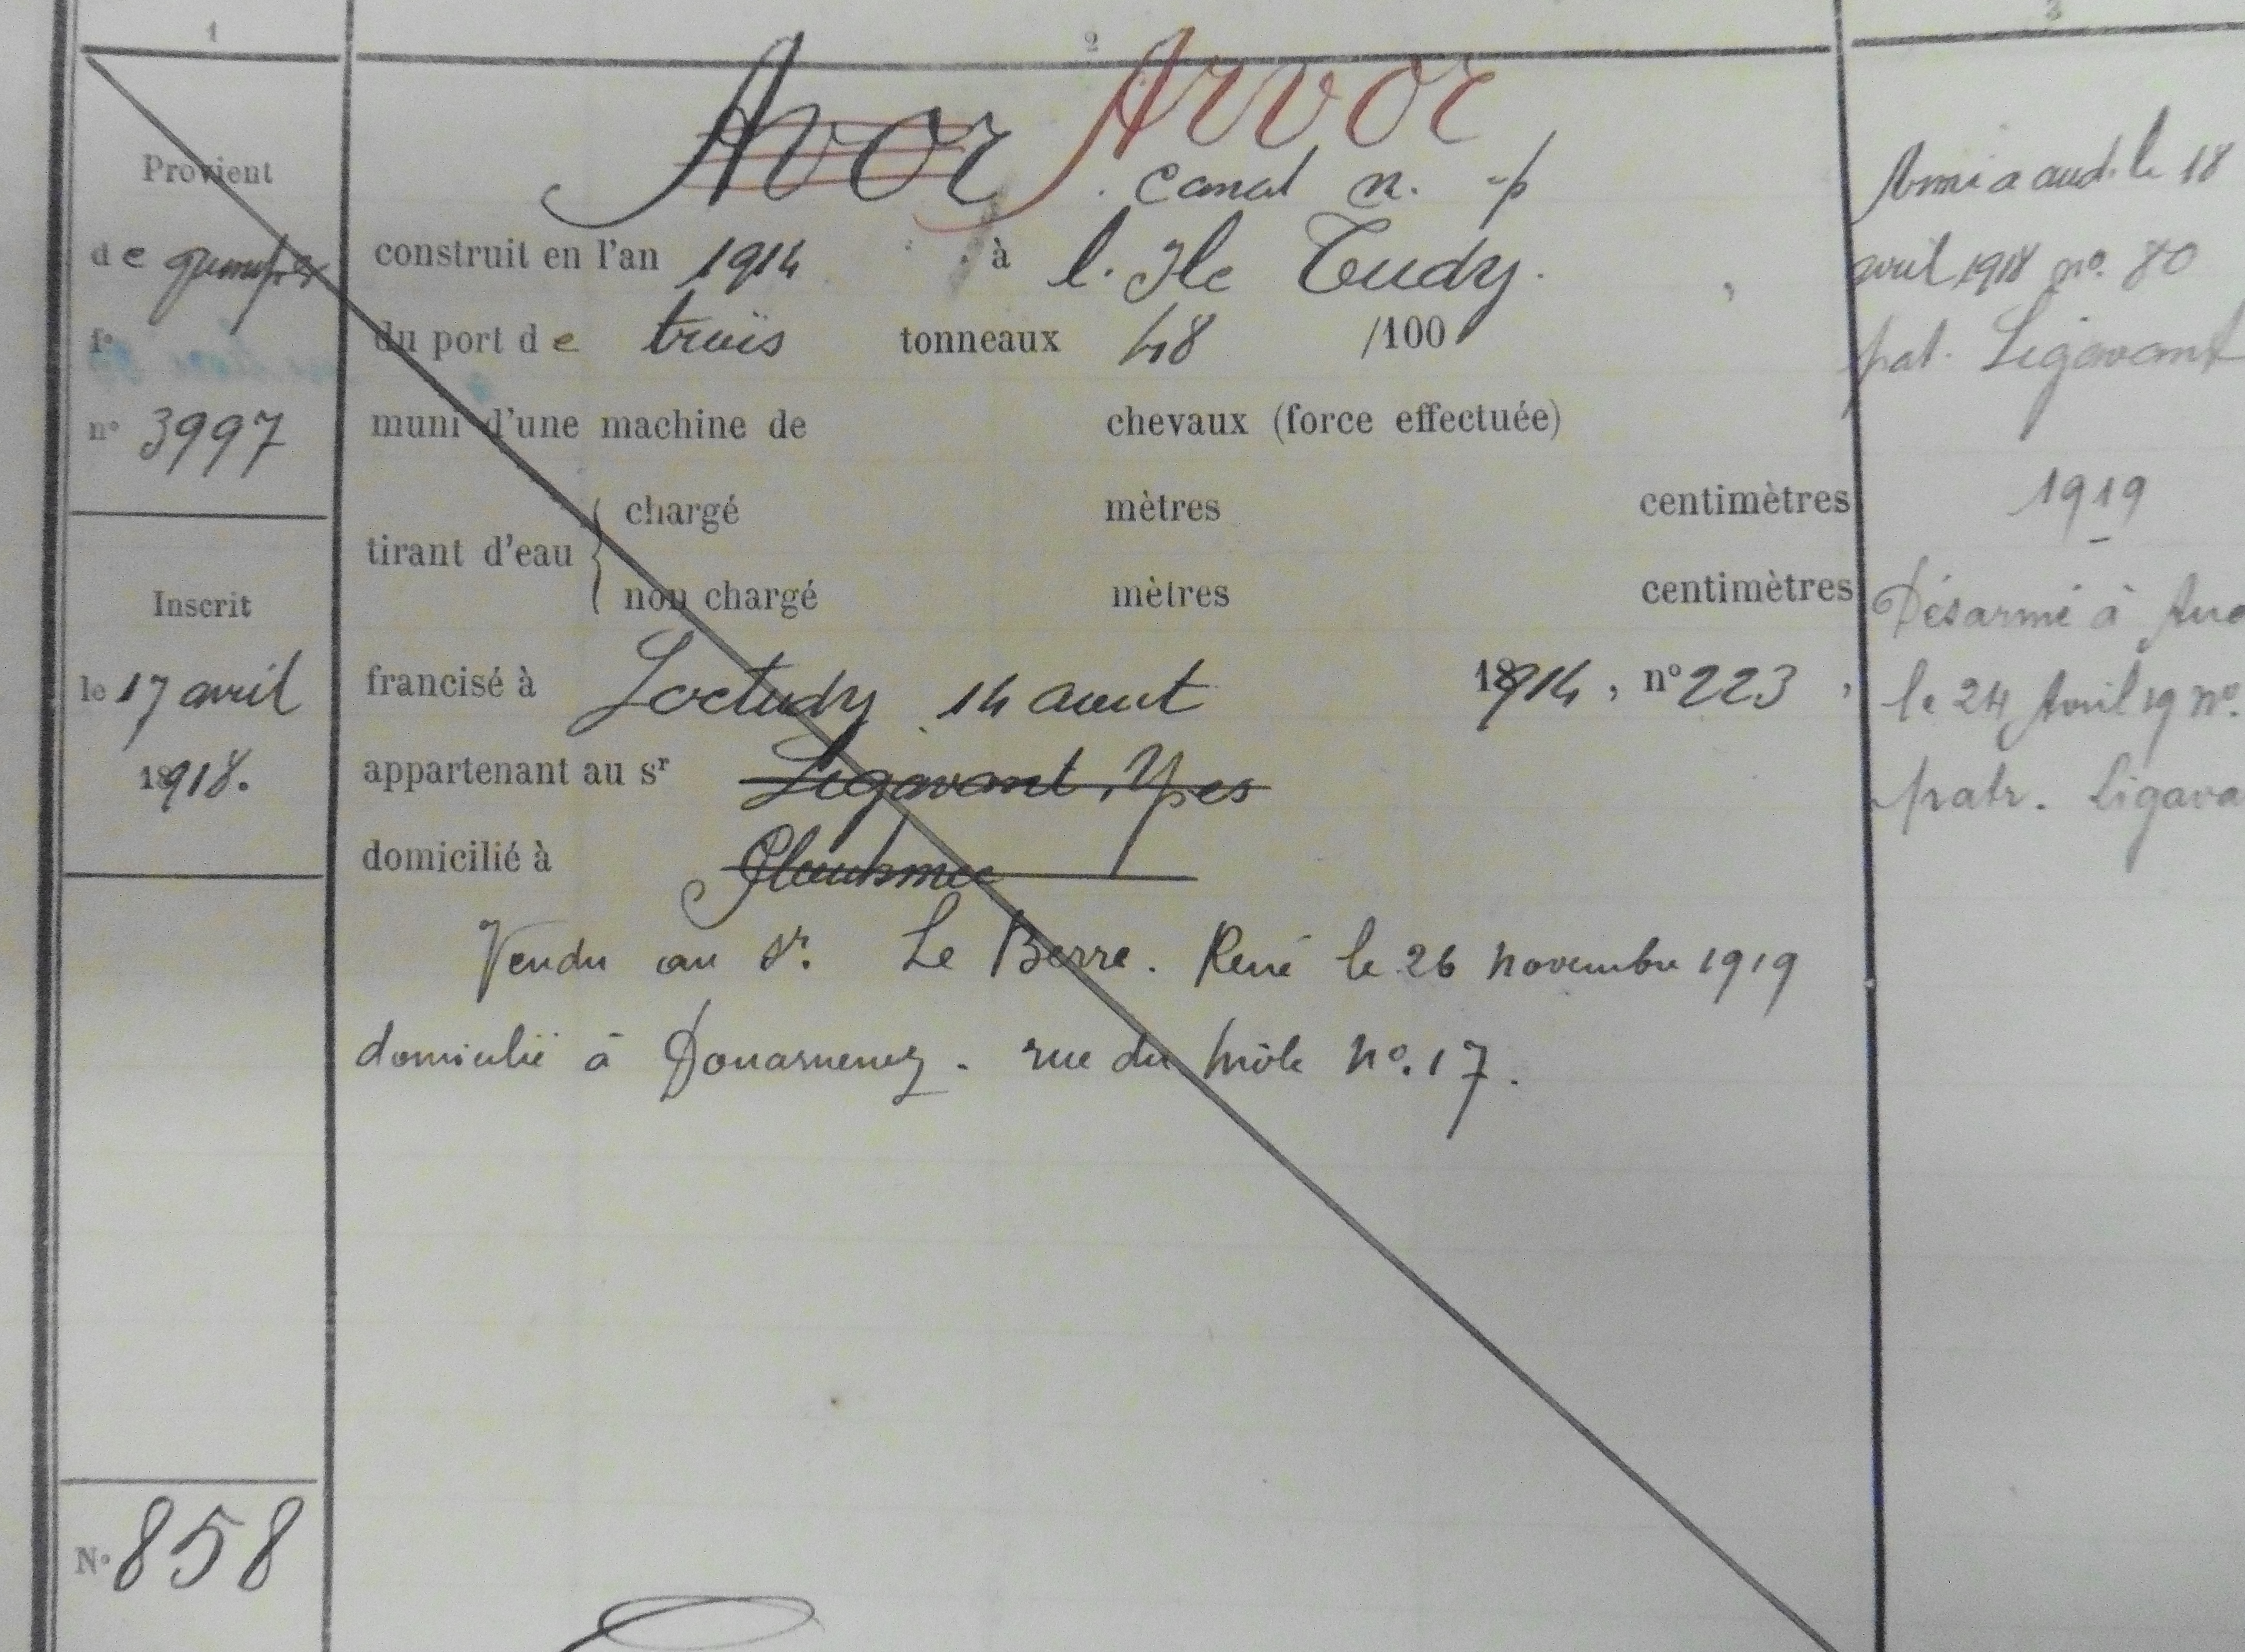 1
2
3
Avor Arvor
canot n. p
Provient
de quimper
f°
n° 3997
Inscrit
le 17 avril
1918.
N° 858
construit en l'an 1914 à l'Ile Tudy.
du port de trois tonneaux 48 /100
muni d'une machine de chevaux (force effectuée)
tirant d'eau { chargé mètres centimètres
non chargé mètres centimètres
francisé à Loctudy 14 aout 1914, n° 223,
appartenant au sr Ligavant, Yves
domicilié à
Vendu au sr. Le Berre. René le 26 novembre 1919
domicilié à Douarnenez. rue du môle n°. 17.
Armé a aud. le 18
avril 1918 n°. 80
pat. Ligavant
1919
Désarmé à Aud
le 24 Avril 19 n°.
patr. Ligava